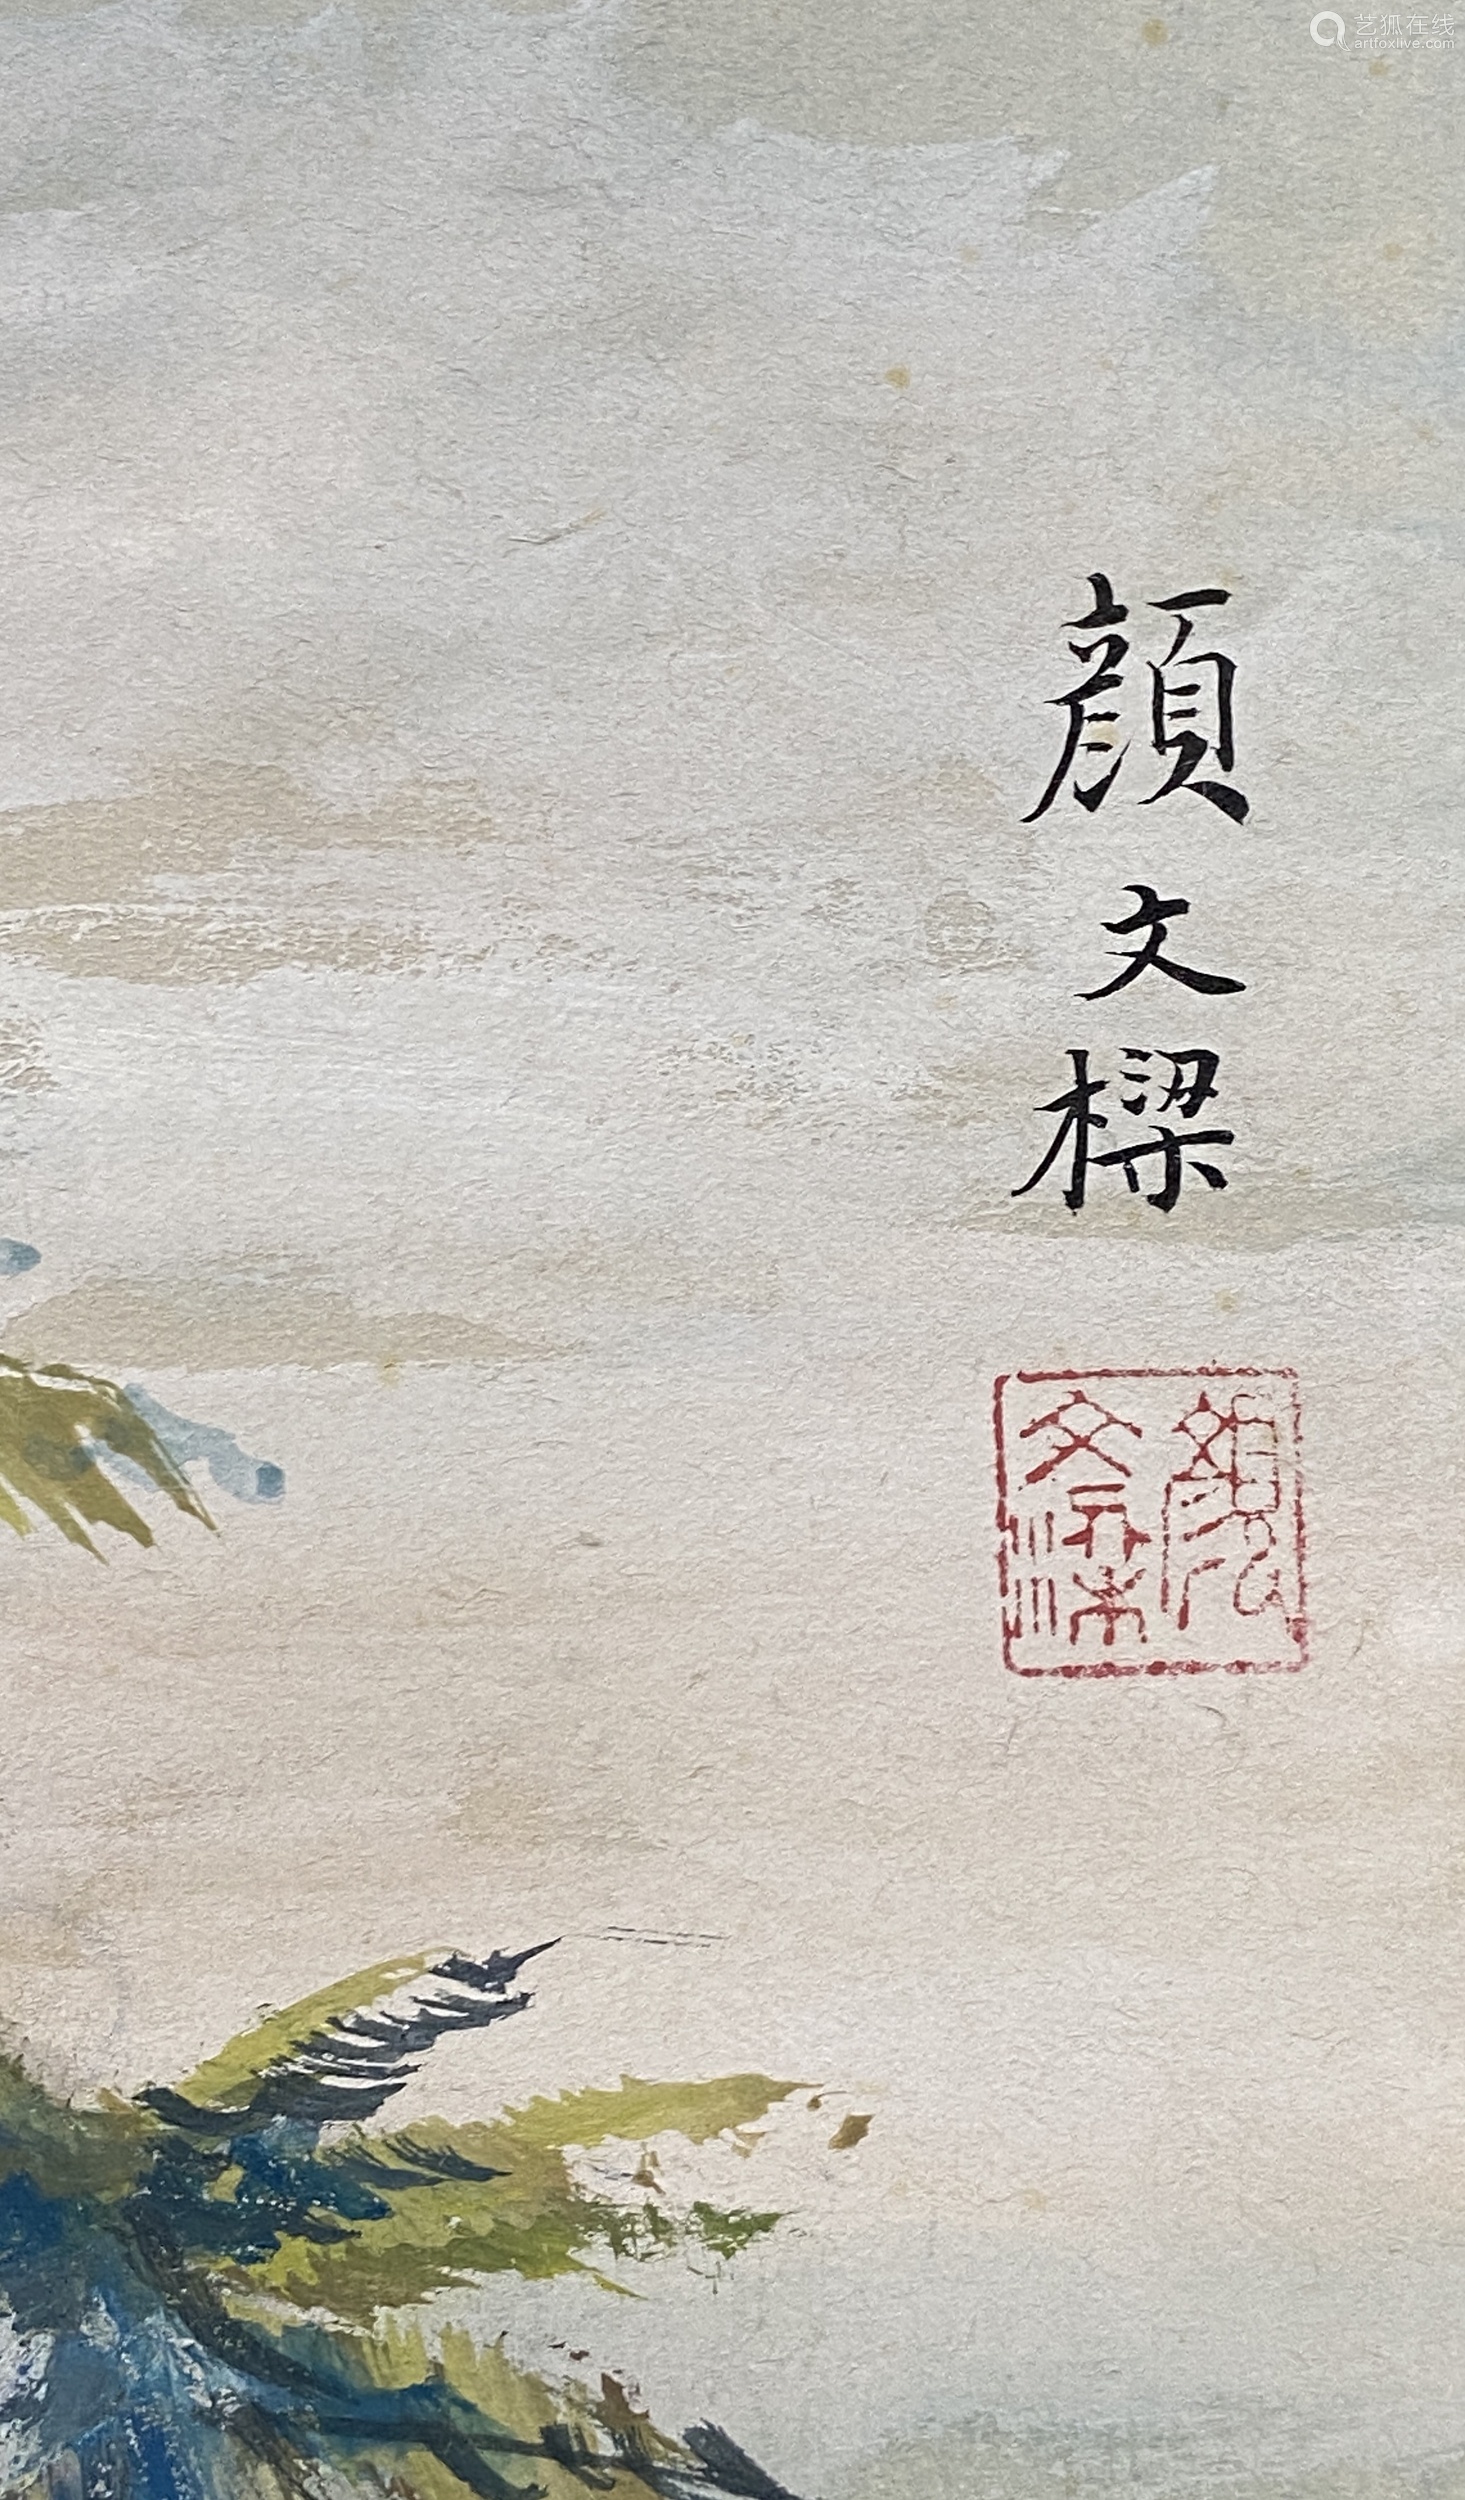 艺狐在线
artfoxlive.com
顔
文
樑
顔
文樑